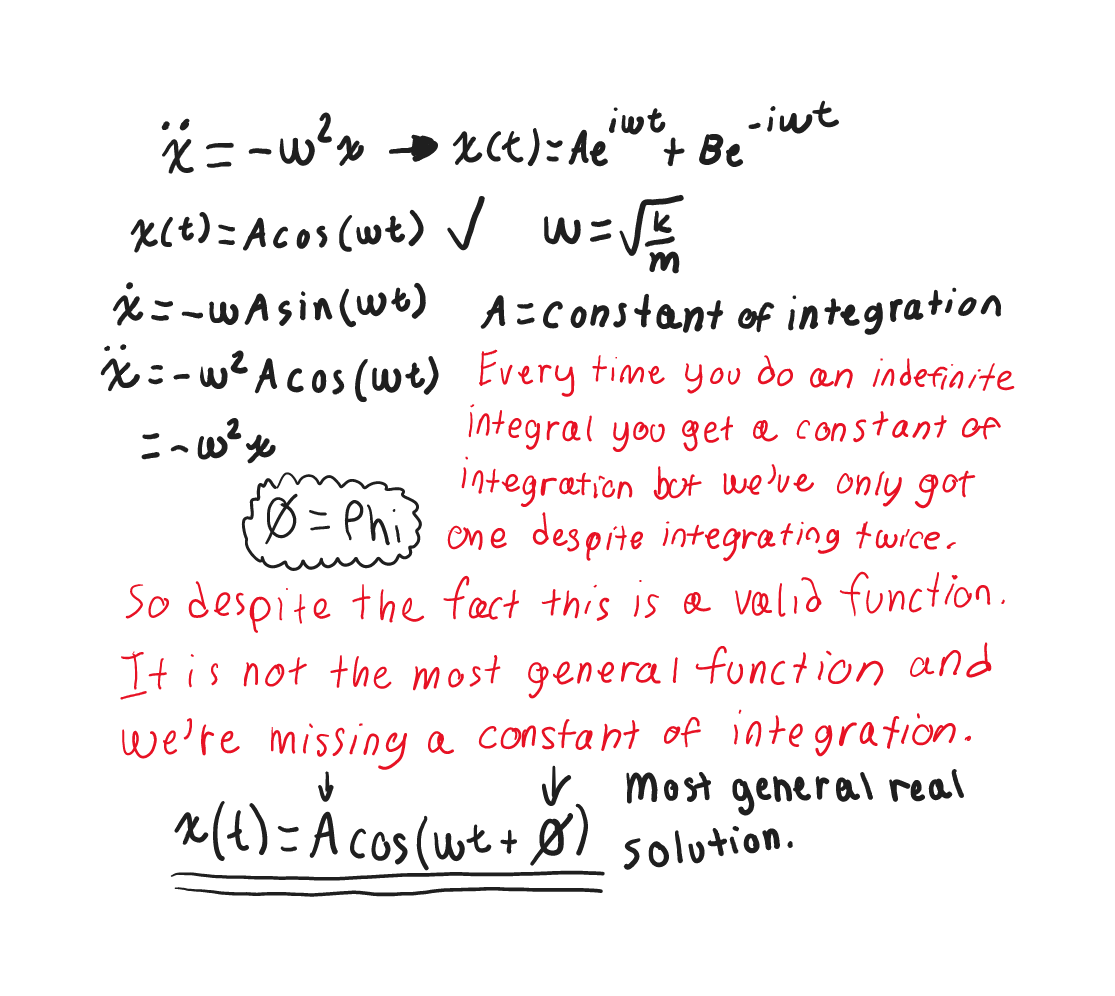 ẍ = -ω²x → x(t) = Ae^{iωt} + Be^{-iωt}
x(t) = A cos(ωt) ✓ ω = √(k/m)
ẋ = -ωA sin(ωt) A = constant of integration
ẍ = -ω²A cos(ωt) Every time you do an indefinite
integral you get a constant of
= -ω²x
integration but we've only got
Ø = Phi
one despite integrating twice.
So despite the fact this is a valid function.
It is not the most general function and
we're missing a constant of integration.
↓ ↓
x(t) = A cos(ωt + Ø) Most general real
solution.